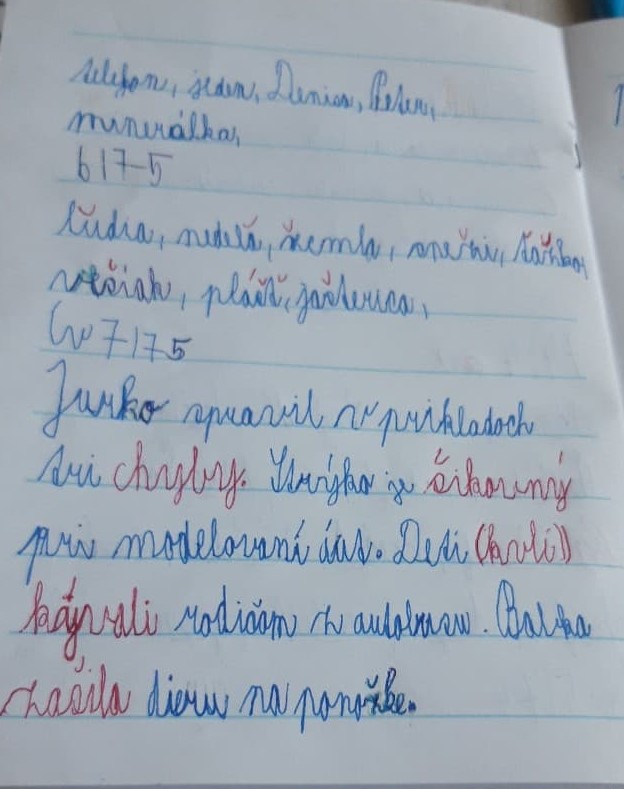 telefon, jeden, Denisa, Peter,
minerálka,
6 17-5
ľudia, nedeľa, žemľa, snežní, ťažko,
vtáčiak, plášť, jašterica,
Cv 7 17 5
Jurko spravil v príkladoch
tri chyby. Strýko je šikovný
pri modelovaní áut. Deti (kvli)
kývali rodičom z autobusu. Babka
zašila dieru na ponožke.